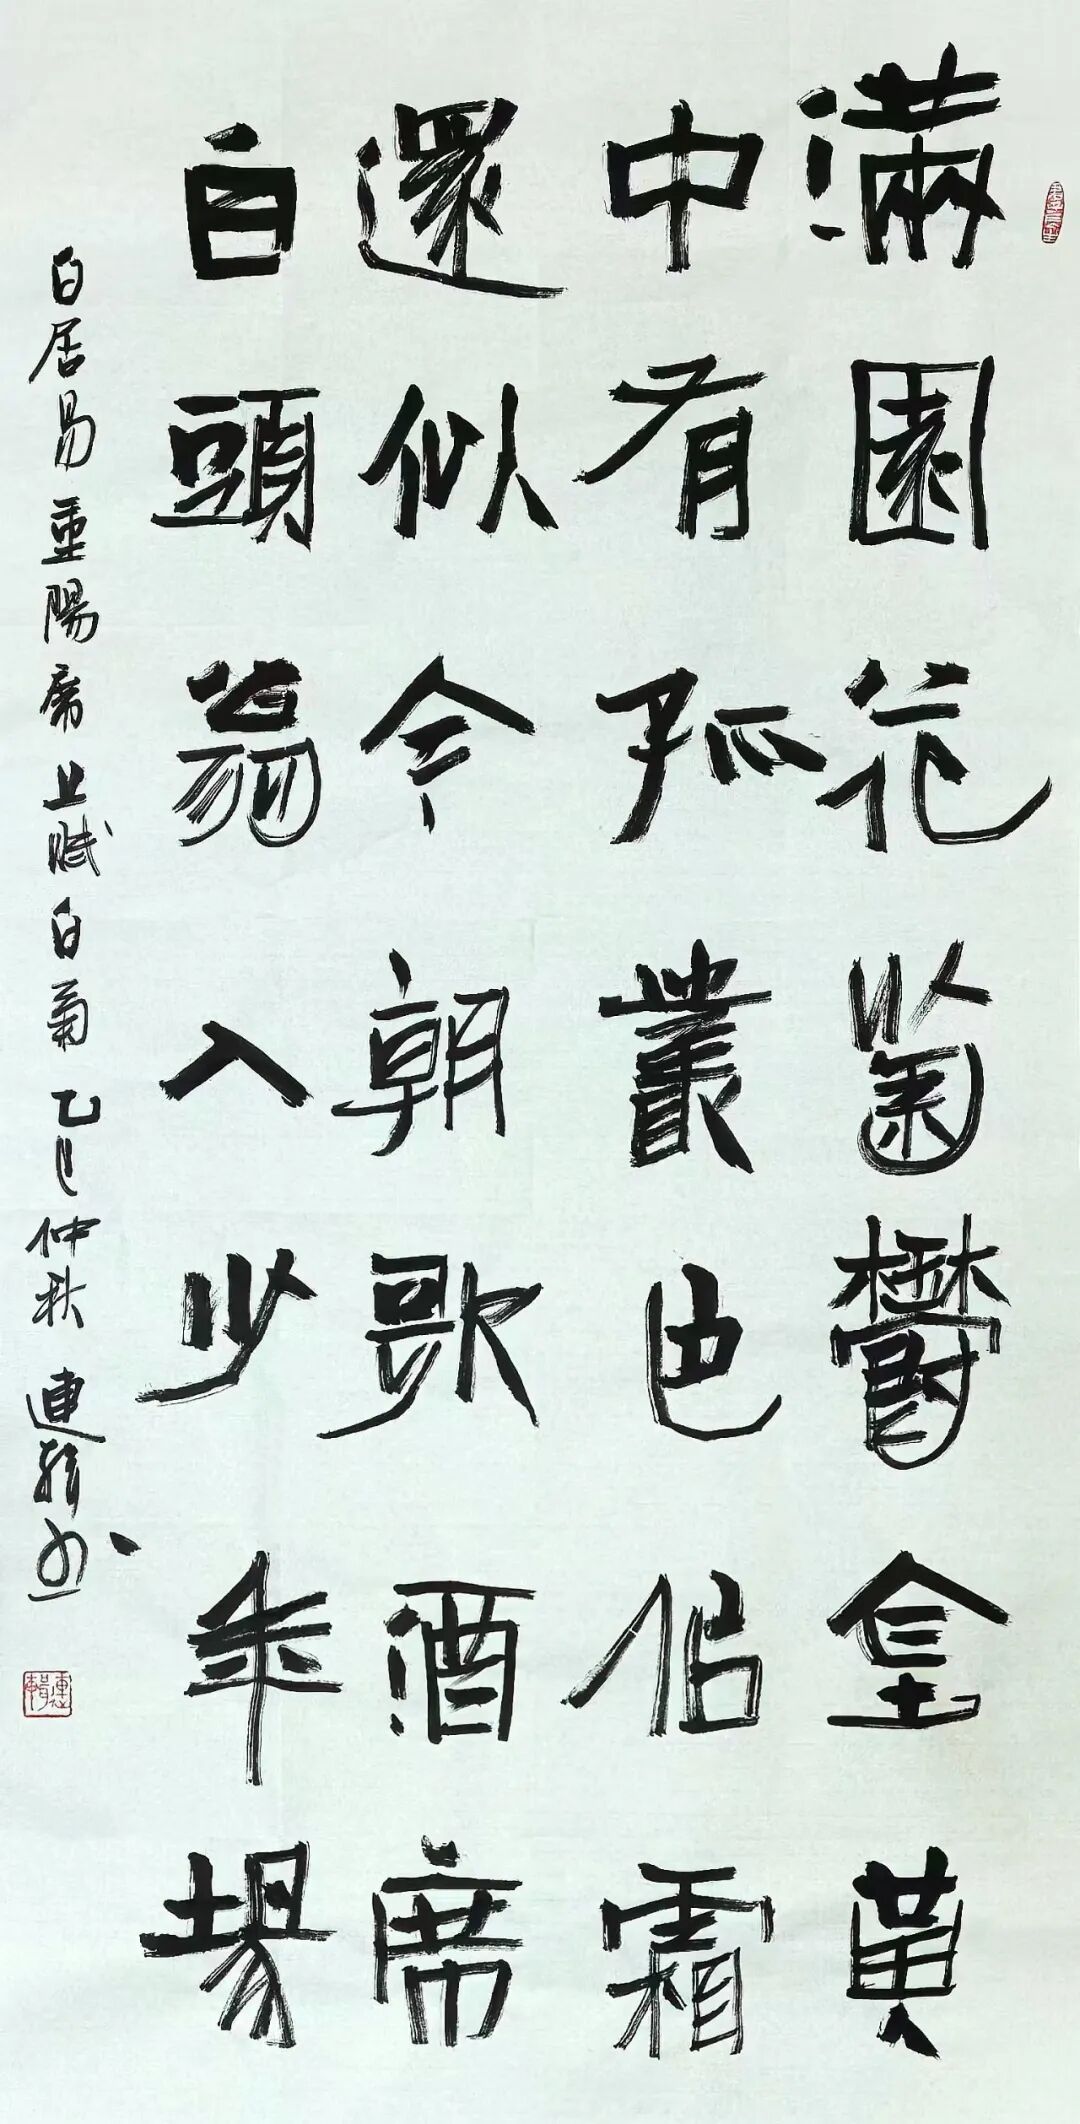 滿園花菊鬱金黃
中有孤叢色佀霜
還似今朝歌酒席
白頭翁入少年場
白居易重陽席上賦白菊乙巳仲秋連輯書
連輯